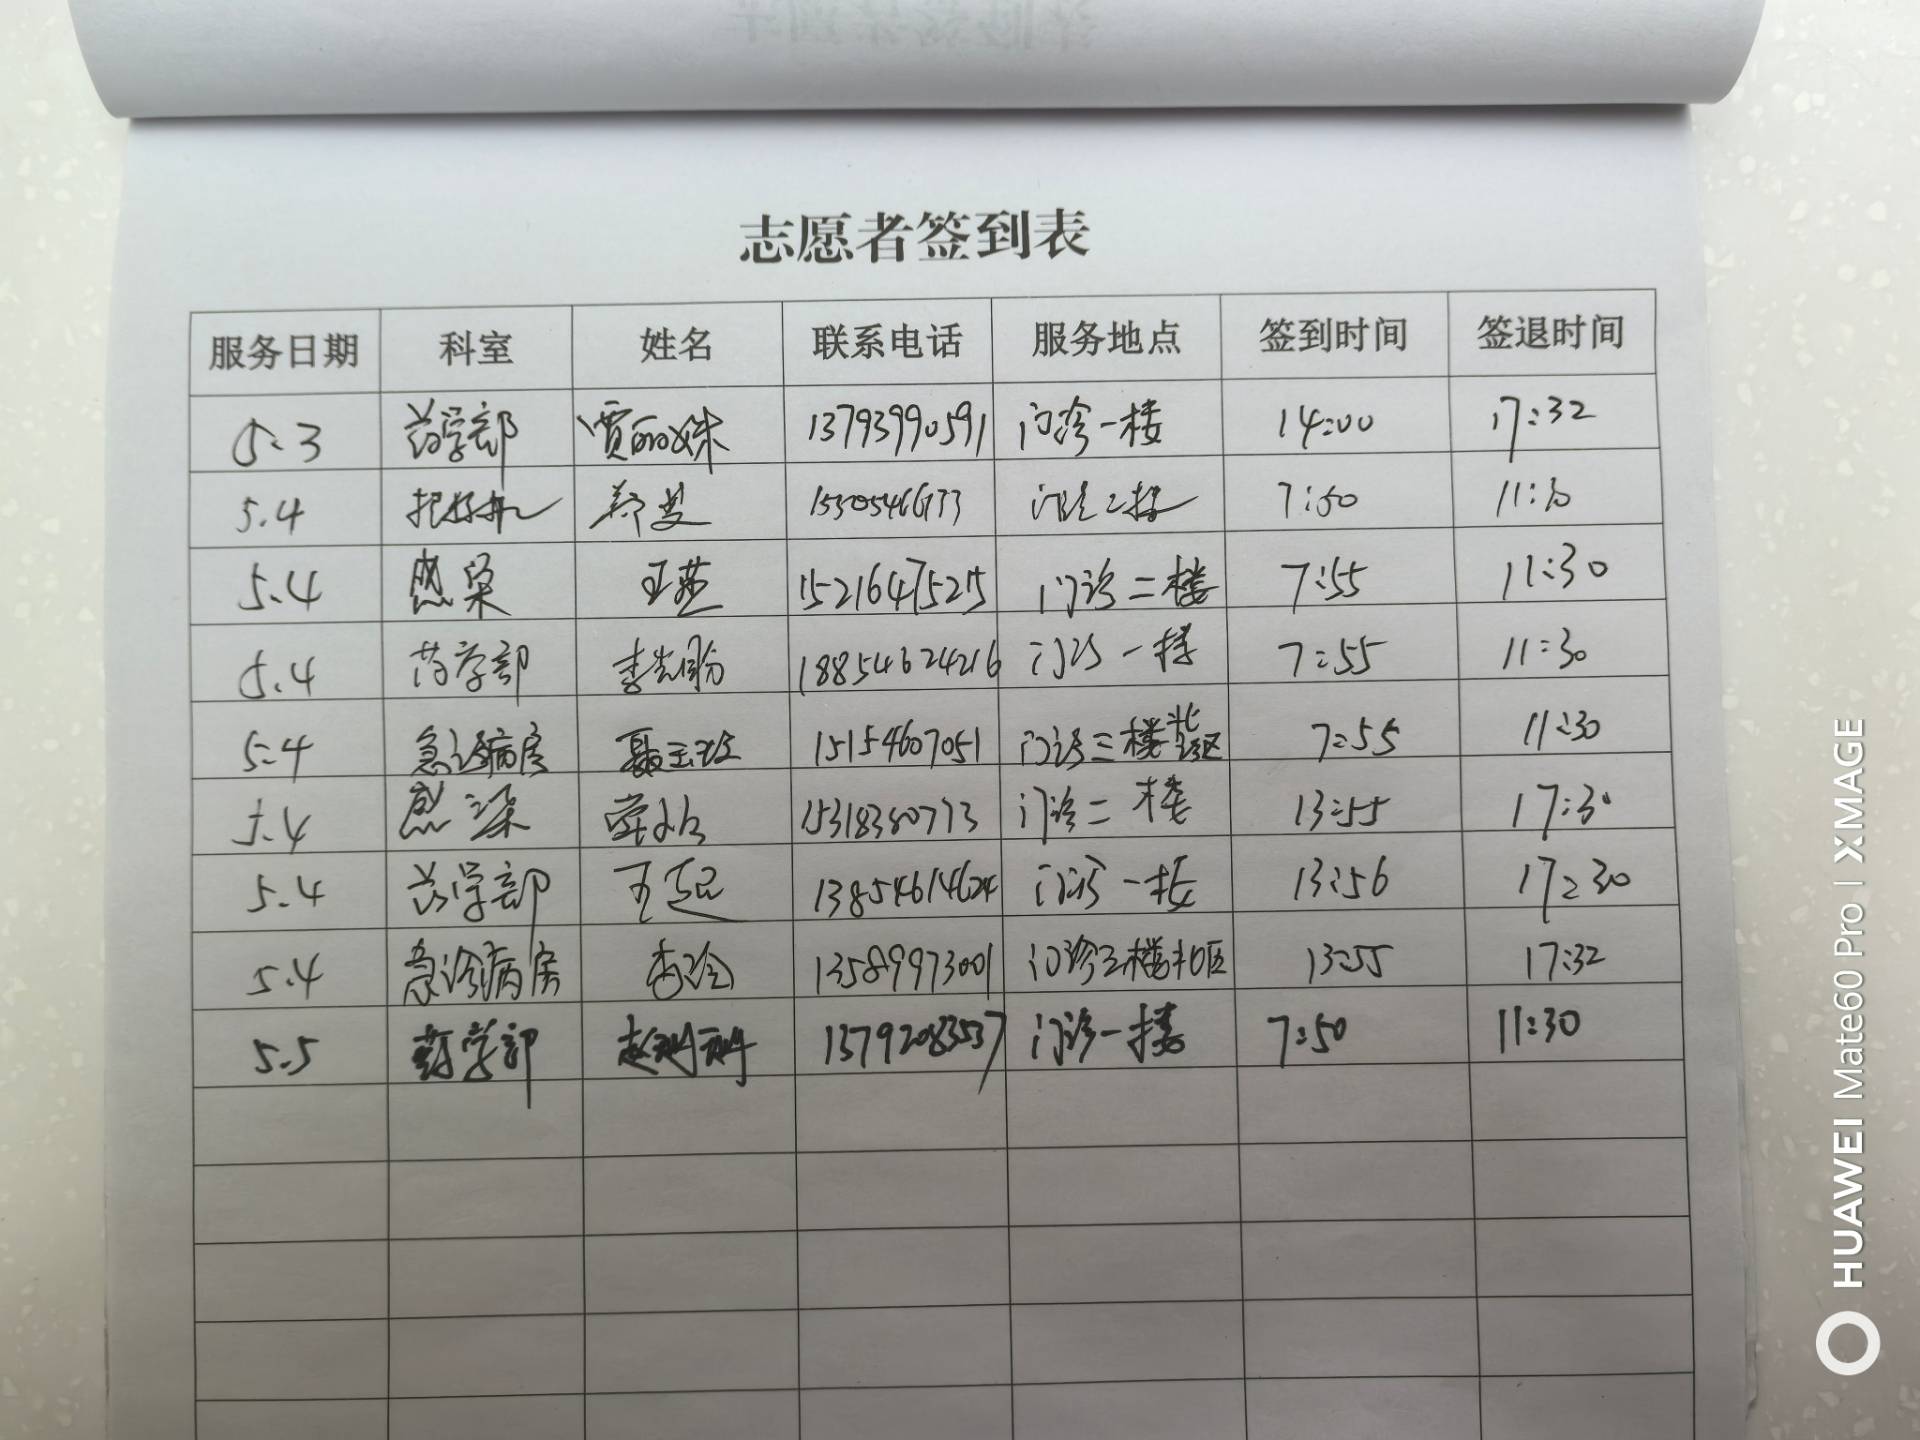 志愿者签到表
服务日期 科室 姓名 联系电话 服务地点 签到时间 签退时间
5.3 药学部 贾丽姝 13793990591 门诊一楼 14:00 17:32
5.4 门诊二楼 7:50 11:30
5.4 感染 王燕 15216475215 门诊二楼 7:55 11:30
5.4 药学部 18854624216 门诊一楼 7:55 11:30
5.4 急诊病房 15154607051 门诊三楼北区 7:55 11:30
5.4 感染 15318380773 门诊二楼 13:55 17:30
5.4 药学部 王 13854614624 门诊一楼 13:56 17:30
5.4 急诊病房 13589973001 门诊三楼北区 13:55 17:32
5.5 药学部 赵 13792083537 门诊一楼 7:50 11:30
HUAWEI Mate60 Pro | XMAGE